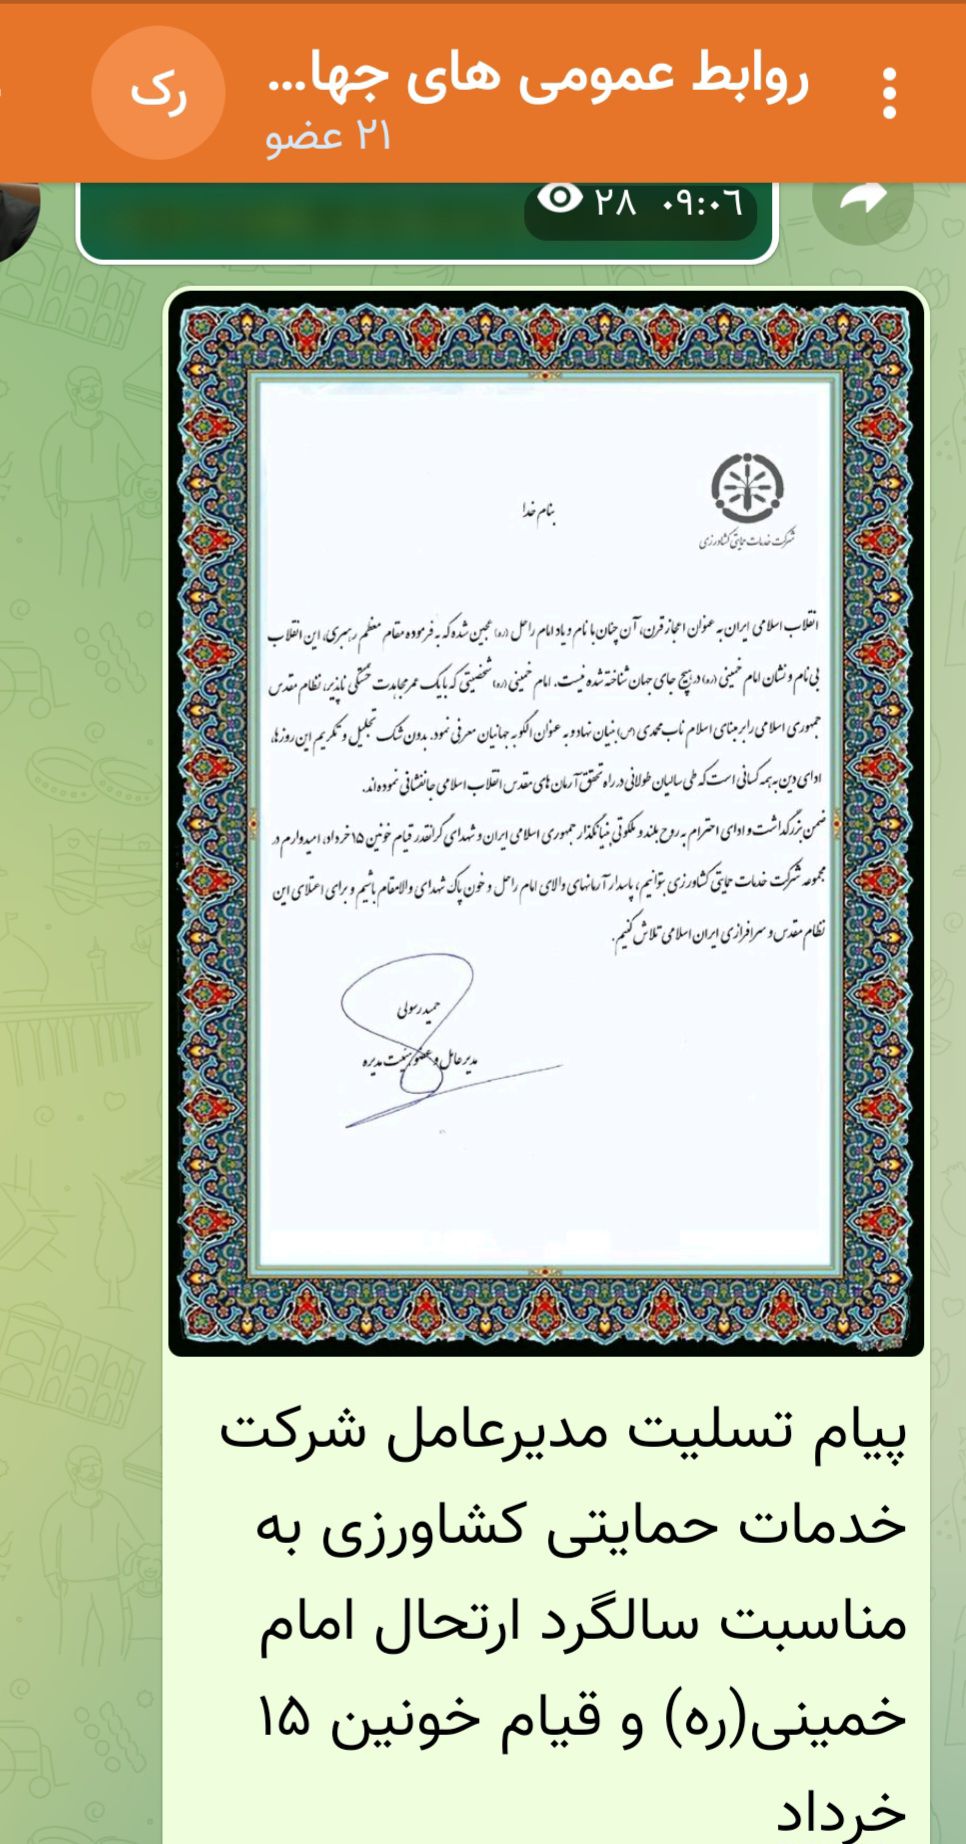 روابط عمومی های جها...
رک
۲۱ عضو
۲۸ ۰۹:۰۶
بنام خدا
شرکت خدمات حمایتی کشاورزی
انقلاب اسلامی ایران به عنوان اعجاز قرن، آن چنان با نام و یاد امام راحل (ره) عجین شده که به فرموده مقام معظم رهبری، این انقلاب
بی نام و نشان امام خمینی (ره) در هیچ جای جهان شناخته شده نیست. امام خمینی (ره) شخصیتی که با یک عمر مجاهدت خستگی ناپذیر، نظام مقدس
جمهوری اسلامی را بر مبنای اسلام ناب محمدی (ص) بنیان نهاد و به عنوان الگو به جهانیان معرفی نمود. بدون شک تجلیل و تکریم این روزها،
ادای دین به همه کسانی است که طی سالیان طولانی در راه تحقق آرمان های مقدس انقلاب اسلامی جانفشانی نموده اند.
ضمن بزرگداشت و ادای احترام به روح بلند و ملکوتی بنیانگذار جمهوری اسلامی ایران و شهدای گرانقدر قیام خونین ۱۵ خرداد، امیدوارم در
مجموعه شرکت خدمات حمایتی کشاورزی بتوانیم، پاسدار آرمانهای والای امام راحل و خون پاک شهدای والامقام باشیم و برای اعتلای این
نظام مقدس و سرافرازی ایران اسلامی تلاش کنیم.
حمید رسولی
مدیرعامل و عضو هیئت مدیره
پیام تسلیت مدیرعامل شرکت
خدمات حمایتی کشاورزی به
مناسبت سالگرد ارتحال امام
خمینی(ره) و قیام خونین ۱۵
خرداد